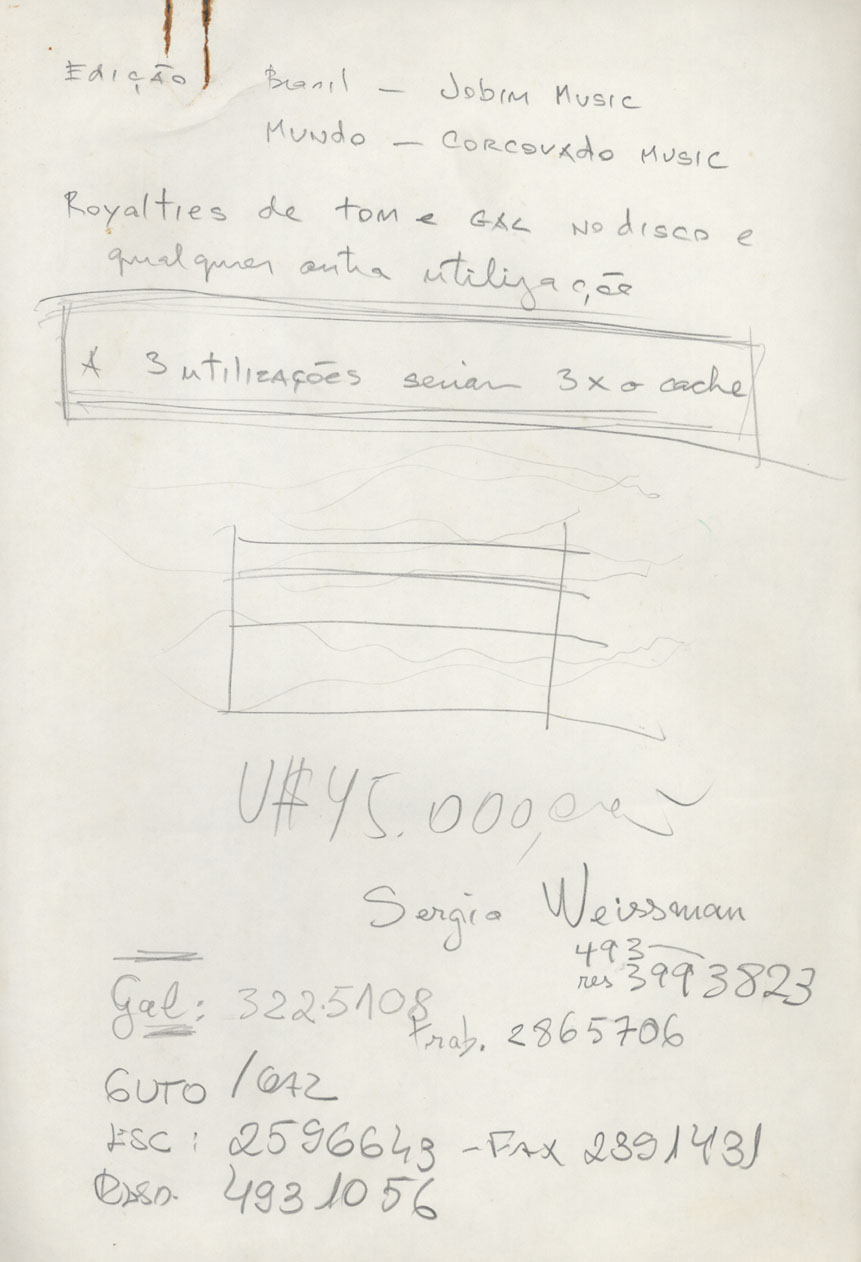 Edição Brasil – Jobim Music
Mundo – Corcovado Music
Royalties de Tom e GAL no disco e
qualquer outra utilização
A 3 utilizações seriam 3x o cache
U$ 45.000,
Sergio Weissman
493
res 3993823
Gal: 322.5108
trab. 2865706
GUTO /
ESC: 2596643 – FAX 2391431
4931056